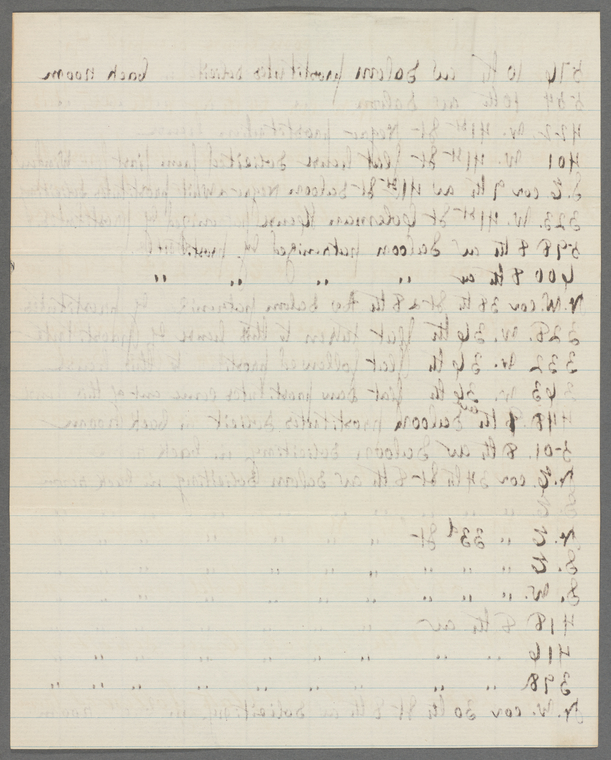 576 10 th av Saloon prostitutes solicit back room
554 10th av Saloon
422 W. 41st St Negro prostitution house
401 W. 41st St flat house solicited from first floor window
S.E. cor 9 th av 41st St Saloon Negro & White prostitutes
323 W. 41st St Coleman House patronized by prostitutes
598 8 th av Saloon patronized by prostitutes
600 8 th av " " " "
N.W. cor 38 th St & 8 th Av Saloon patronized by prostitutes
328 W. 36 th flat taken to this house by prostitute
332 W. 36 th flat followed prost. to this house
263 W. 36 th flat saw prostitutes come out of this house
448 8 th av Saloon prostitutes solicit in back room
501 8 th av Saloon soliciting in back room
N.E. cor 34 th St & 8 th av Saloon Soliciting in back room
N.E. " 33d St " " " " "
S.E. " " " " " " " "
S.W. " " " " " " " "
418 8 th av " " " "
416 " " " " " " "
398 " " " " " " "
N.W. cor 30 th St & 8 th av soliciting in back room